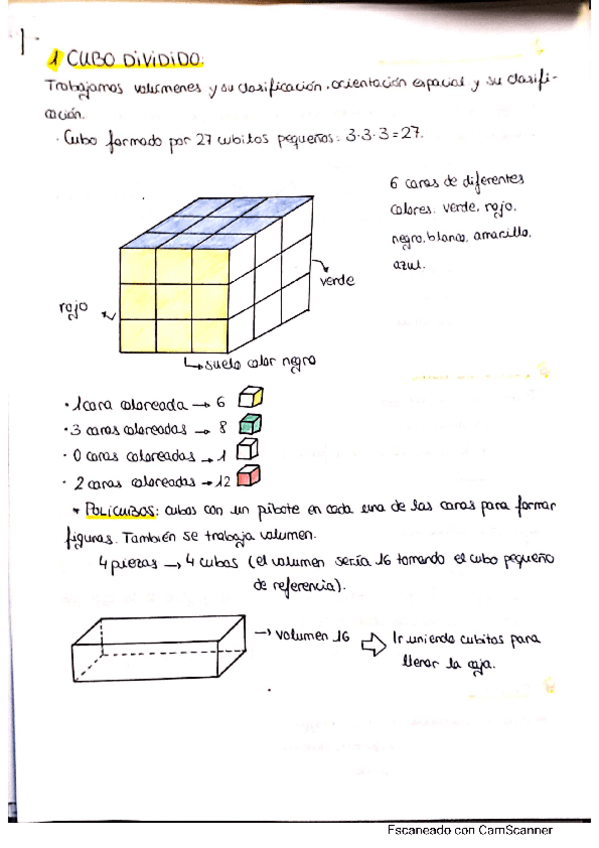 1 CUBO DIVIDIDO:
Trabajamos volúmenes y su clasificación, orientación espacial y su clasifi-
cación.
· Cubo formado por 27 cubitos pequeños: 3·3·3=27.
6 caras de diferentes
colores. verde, rojo,
negro, blanco, amarillo,
azul.
verde
rojo
suelo color negro
· 1 cara coloreada → 6
· 3 caras coloreadas → 8
· 0 caras coloreadas → 1
· 2 caras coloreadas → 12
* POLICUBOS: cubos con un pibote en cada una de las caras para formar
figuras. También se trabaja volumen.
4 piezas → 4 cubos (el volumen sería 16 tomando el cubo pequeño
de referencia).
→ volumen 16 ⇨ Ir uniendo cubitos para
llenar la caja.
Escaneado con CamScanner